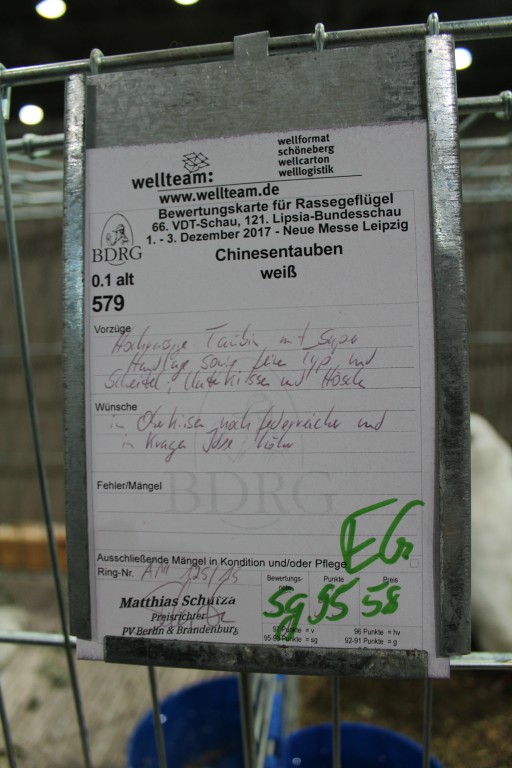 wellformat
schöneberg
wellcarton
welllogistik
wellteam:
www.wellteam.de
Bewertungskarte für Rassegeflügel
66. VDT-Schau, 121. Lipsia-Bundesschau
1. - 3. Dezember 2017 - Neue Messe Leipzig
BDRG
Chinesentauben
weiß
0.1 alt
579
Vorzüge
Hochrassige Täubin mit super
Handlage sowie feiner Typ und
Scheitel, Unterkissen und Hösch
Wünsche
im Oberkissen noch federreicher und
im Kragen
Fehler/Mängel
BDRG
EG
Ausschließende Mängel in Kondition und/oder Pflege
Ring-Nr.
Bewertungs-
note
Punkte
Preis
sg 95 58
Matthias Schutza
Preisrichter
PV Berlin & Brandenburg
97 Punkte = v
96 Punkte = hv
95-93 Punkte = sg
92-91 Punkte = g